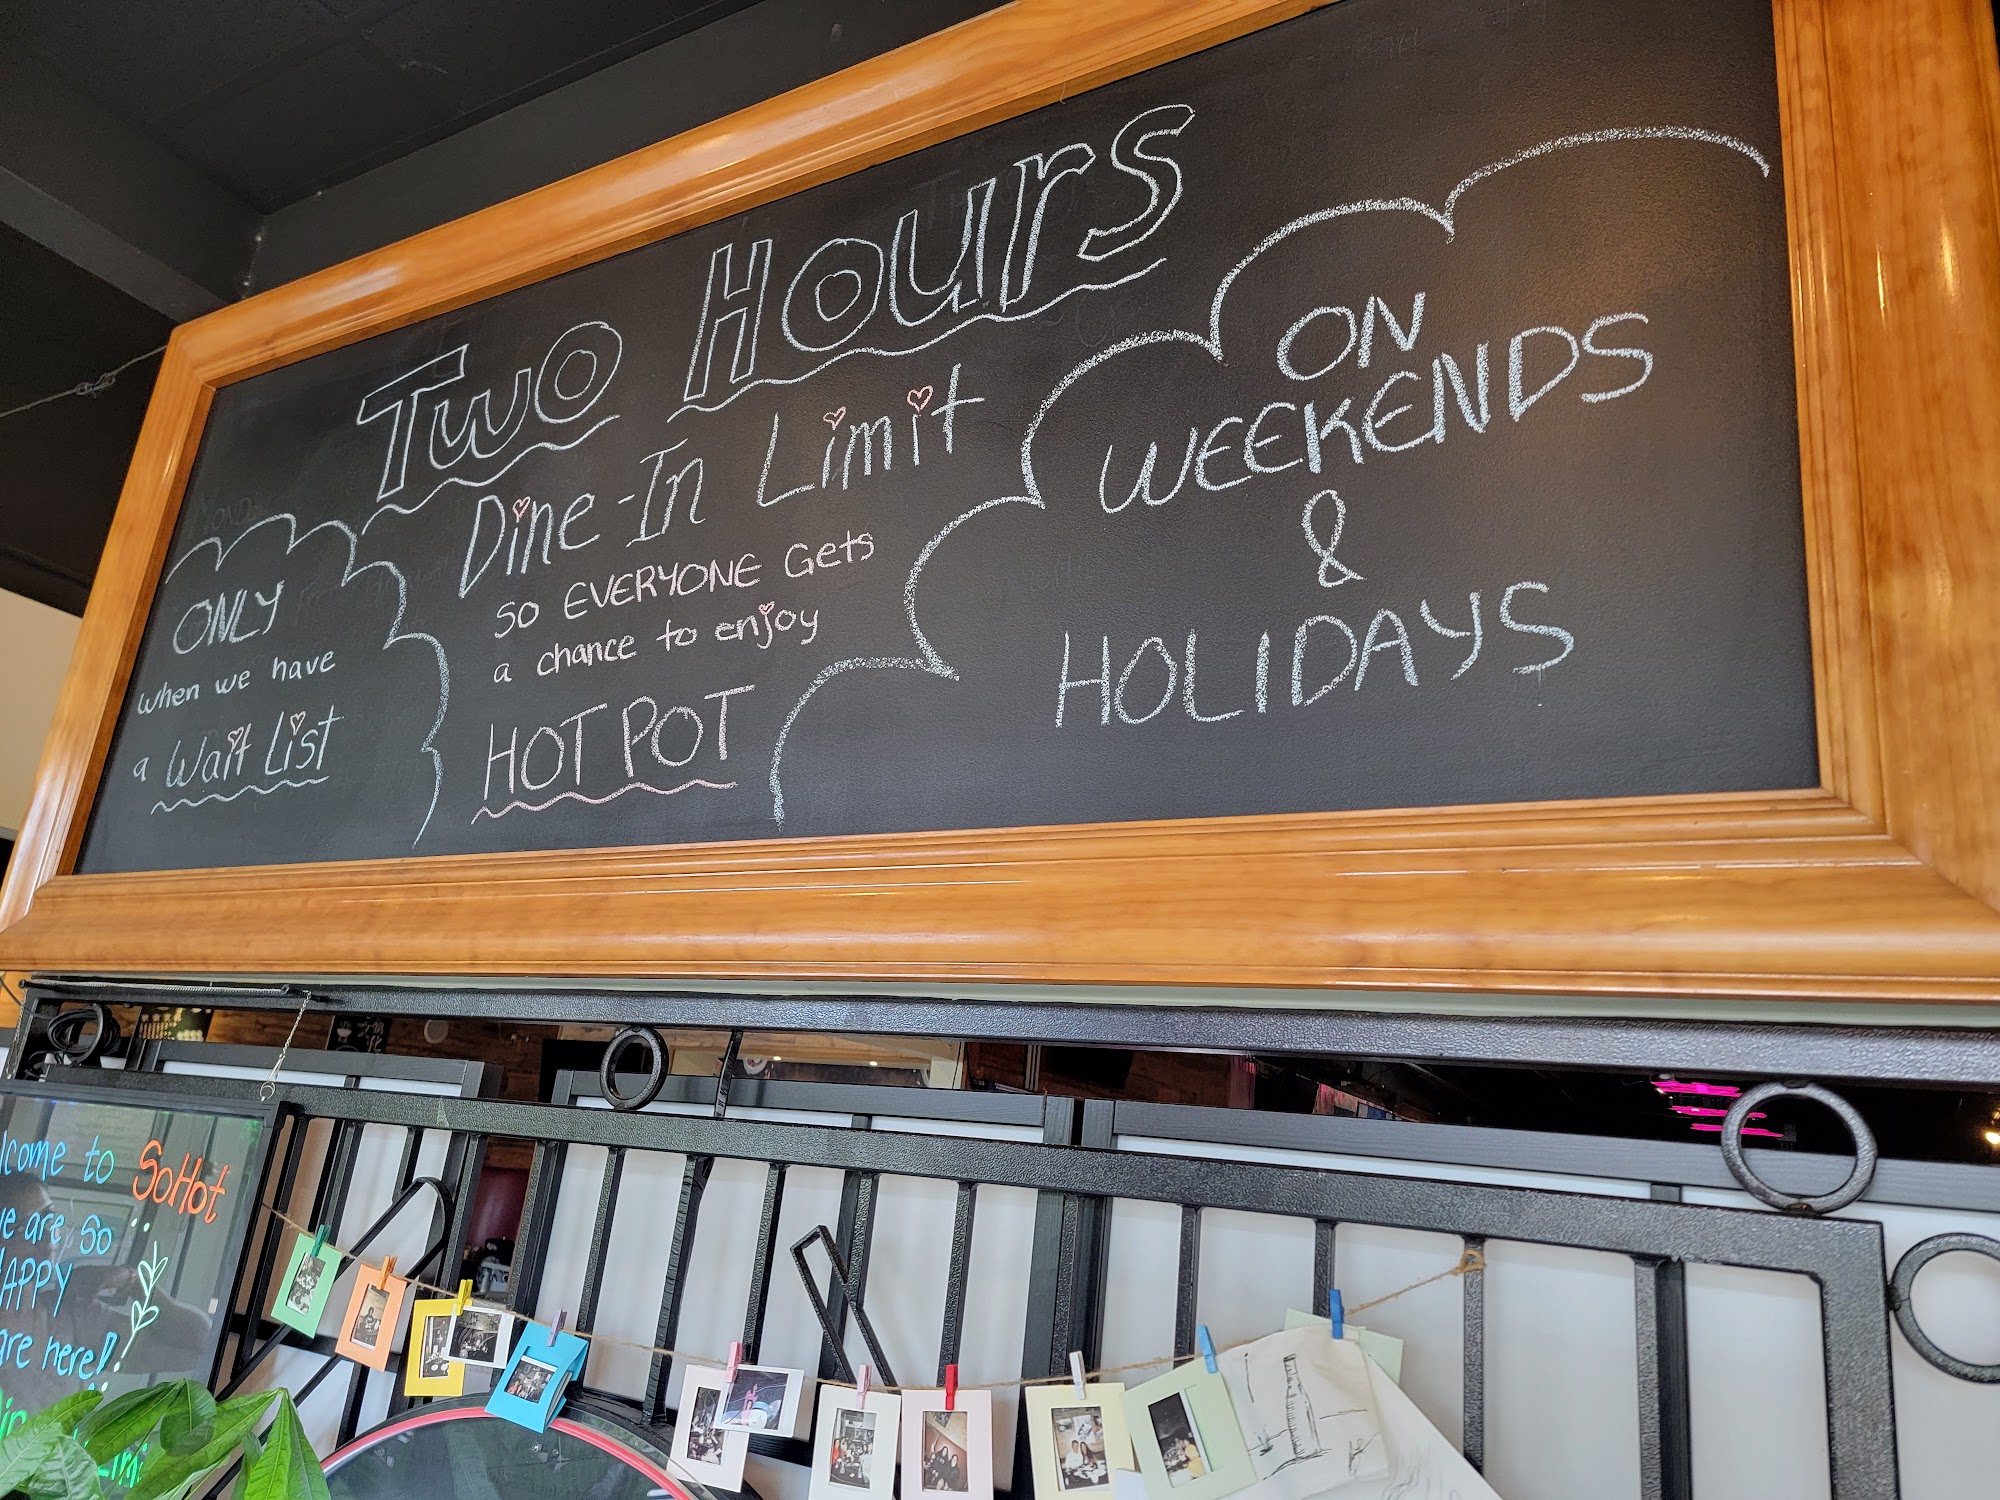 Two Hours
Dine-In Limit
so EVERYONE Gets
a chance to enjoy
HOT POT
ONLY
when we have
a Wait List
ON
WEEKENDS
&
HOLIDAYS
to SoHot
are so
here!